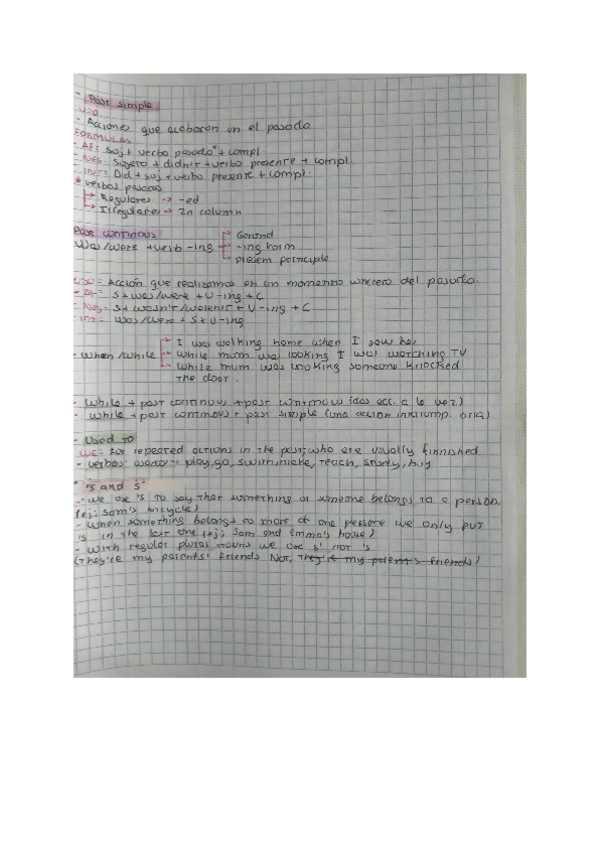 - Past simple
USO
- Acciones que acabaron en el pasado
FÓRMULAS
- Af: Suj + verbo pasado* + compl.
- Neg: Sujeto + didn't + verbo presente + compl.
- Int = Did + suj + verbo presente + compl.
* verbos pasado
Regulares → -ed
Irregulares → 2n column
Past continous
Was/were + verb -ing
Gerund
-ing form
present participle
USO = Acción que realizamos en un momento concreto del pasado.
- Af: S + was/were + V-ing + C
- Neg: S + wasn't/weren't + V-ing + C
- Int: was/were + S + V-ing
- When/while
I was walking home when I saw her
While mum was cooking I was watching TV
While mum was cooking someone knocked
the door.
- While + past continous + past continuous (dos acc. a la vez)
- While + past continous + past simple (una acción interrump. otra)
- Used to
USE: for repeated actions in the past, who are usually finnished
- verbos → play, go, swim, make, teach, study, buy
* 's and s'
- We use 's to say that something or someone belongs to a person
(ej: Sam's bicycle)
- When something belongs to more of one person we only put
's in the last one (ej: Sam and Emma's house)
- With regular plural nouns we use s' not 's
(They're my parents' friends Not, they're my parent's friends)